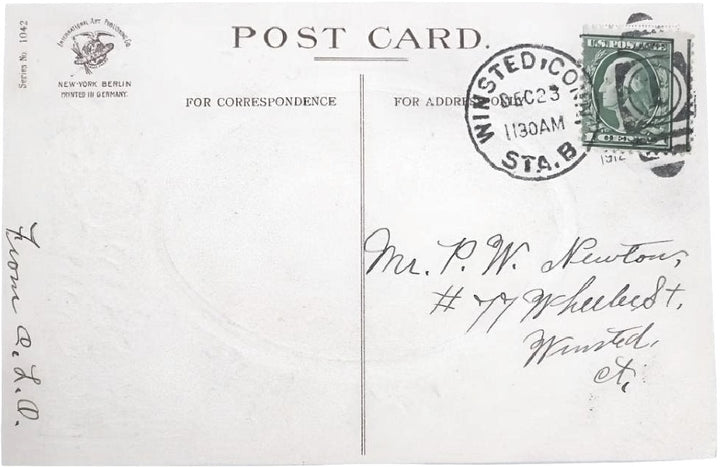 Series No. 1042
International Art Publishing Co.
NEW-YORK BERLIN
PRINTED IN GERMANY.
POST CARD.
FOR CORRESPONDENCE
FOR ADDRESS ONLY
WINSTED, CONN.
DEC 23
1130AM
1912
STA. B
U.S. POSTAGE
Mr. P. W. Newton,
# 77 Wheeler St,
Winsted,
Ct,
From A. L. D.